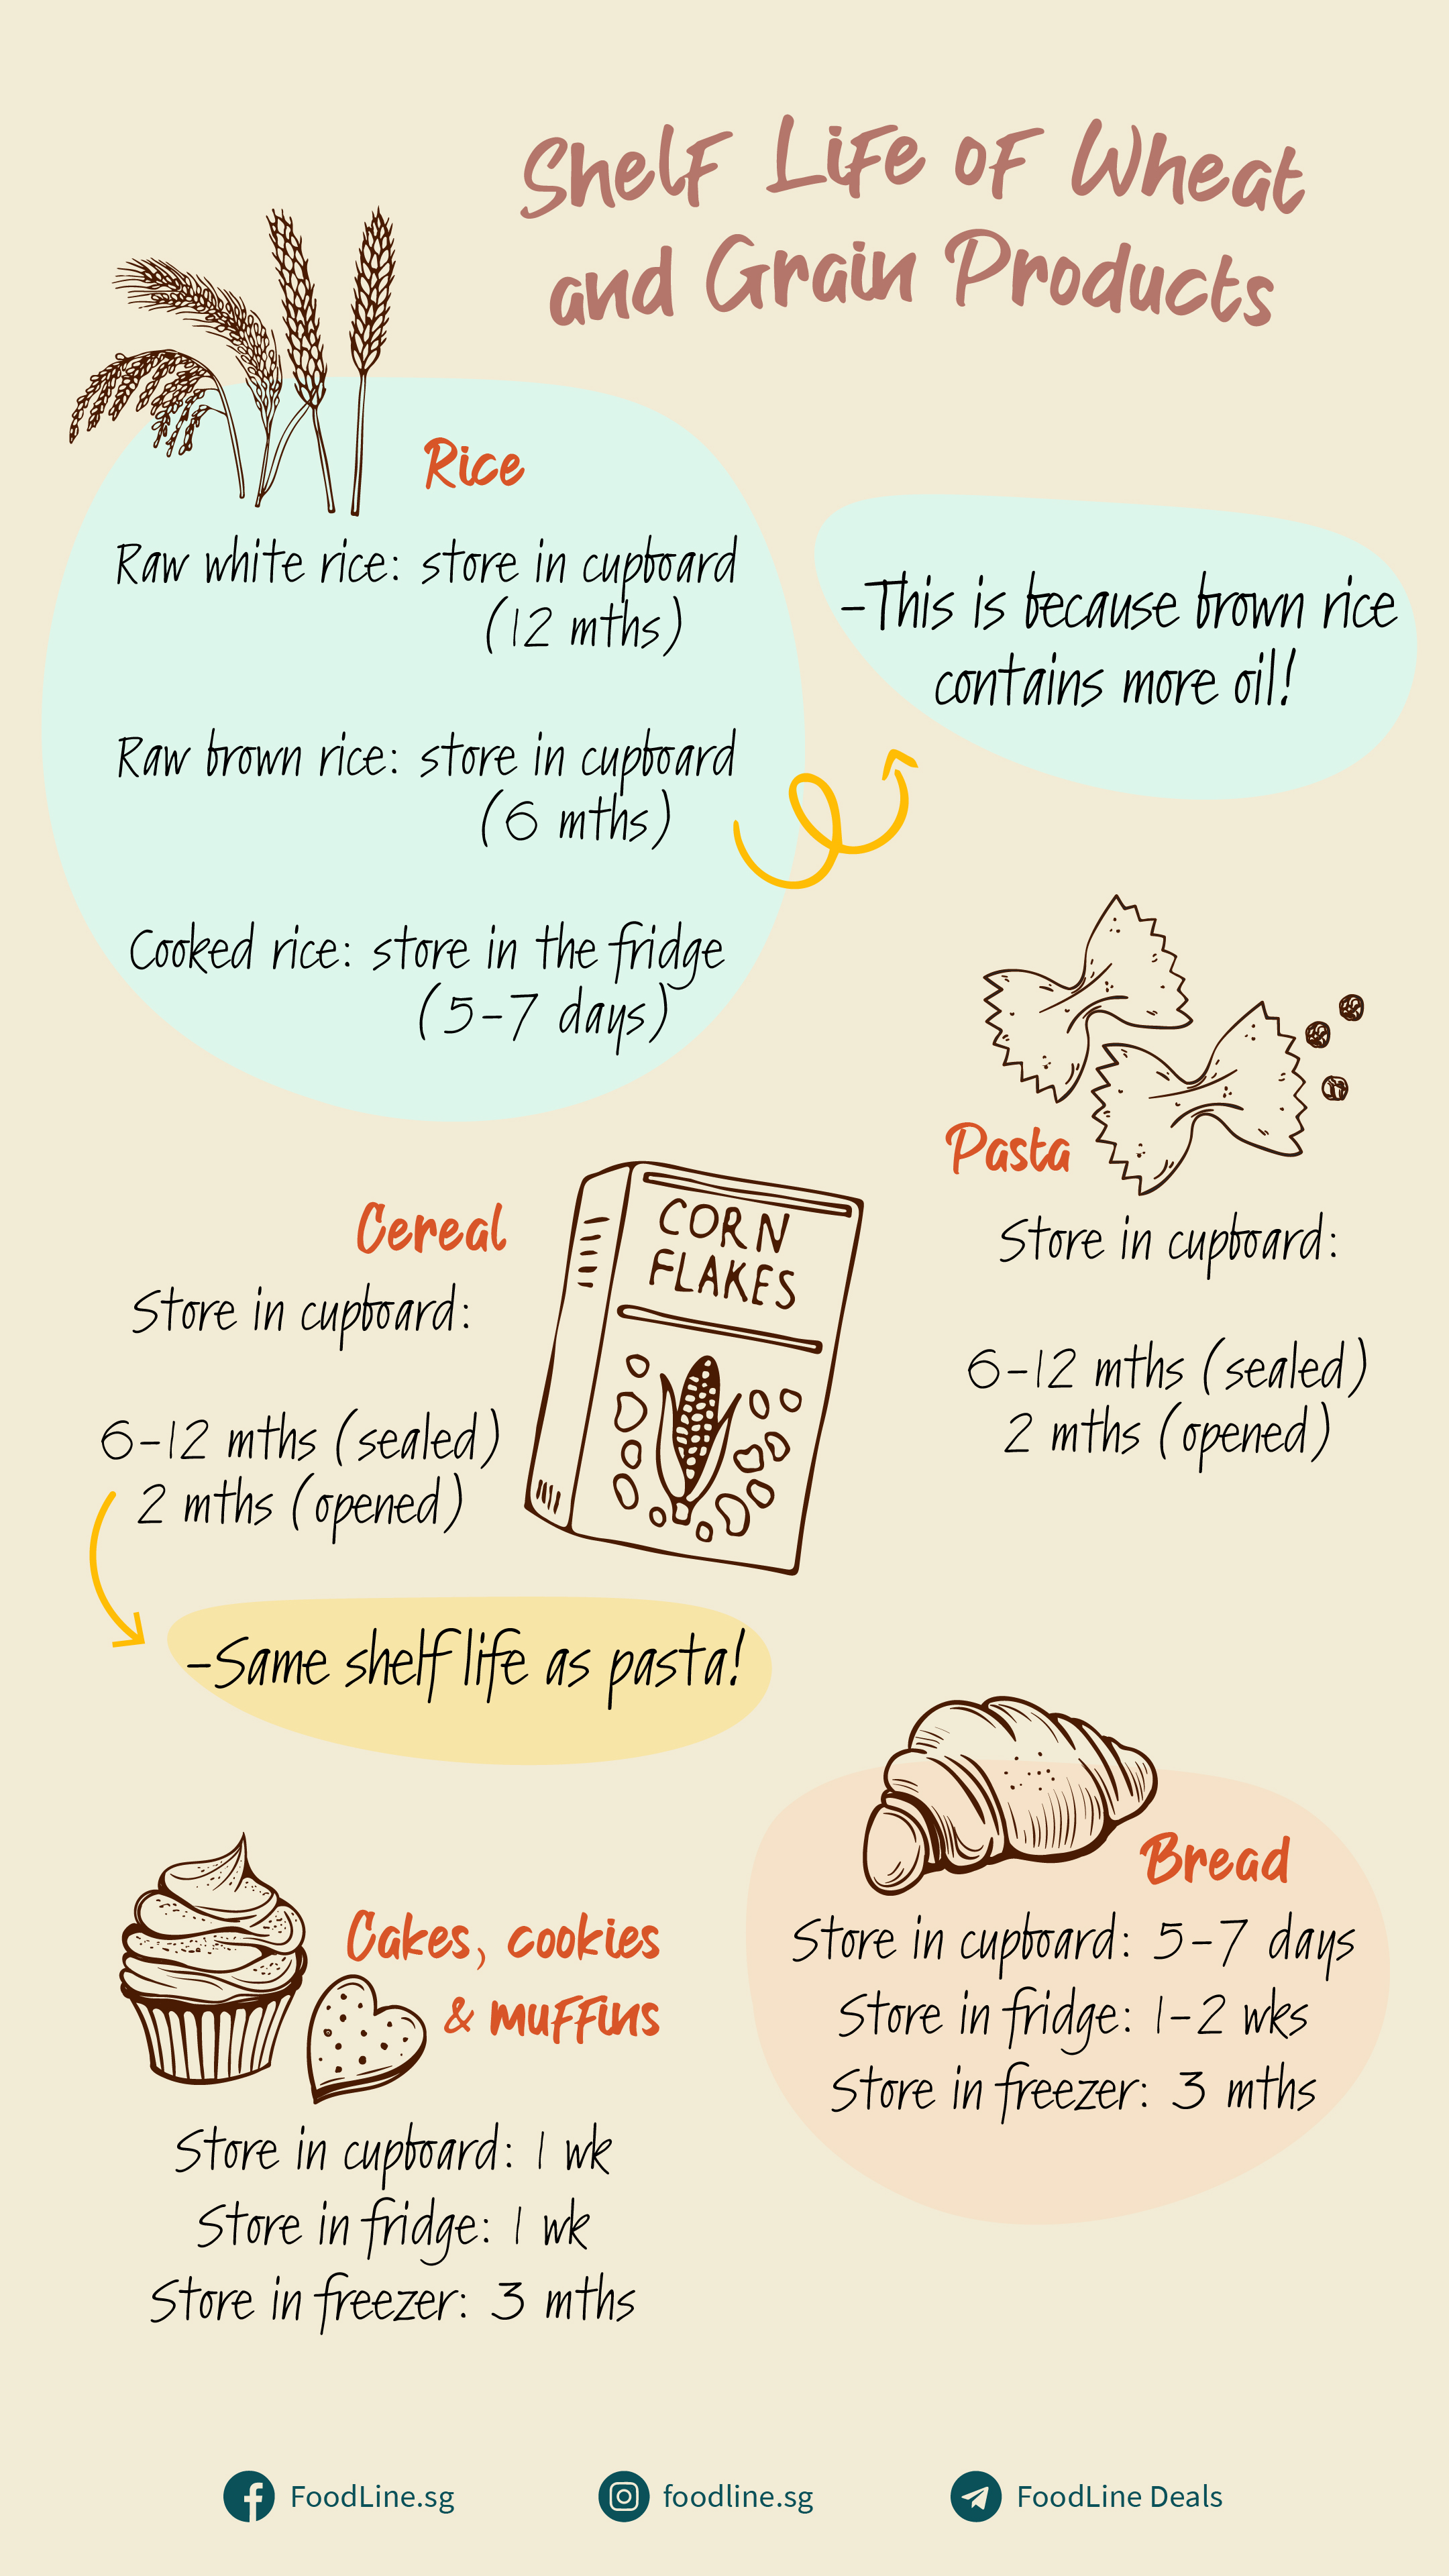 Shelf Life of Wheat
and Grain Products
Rice
Raw white rice: store in cupboard
(12 mths)
Raw brown rice: store in cupboard
(6 mths)
Cooked rice: store in the fridge
(5-7 days)
-This is because brown rice
contains more oil!
Pasta
Store in cupboard:
6-12 mths (sealed)
2 mths (opened)
Cereal
Store in cupboard:
6-12 mths (sealed)
2 mths (opened)
CORN
FLAKES
-Same shelf life as pasta!
Bread
Store in cupboard: 5-7 days
Store in fridge: 1-2 wks
Store in freezer: 3 mths
Cakes, cookies
& muffins
Store in cupboard: 1 wk
Store in fridge: 1 wk
Store in freezer: 3 mths
FoodLine.sg
foodline.sg
FoodLine Deals